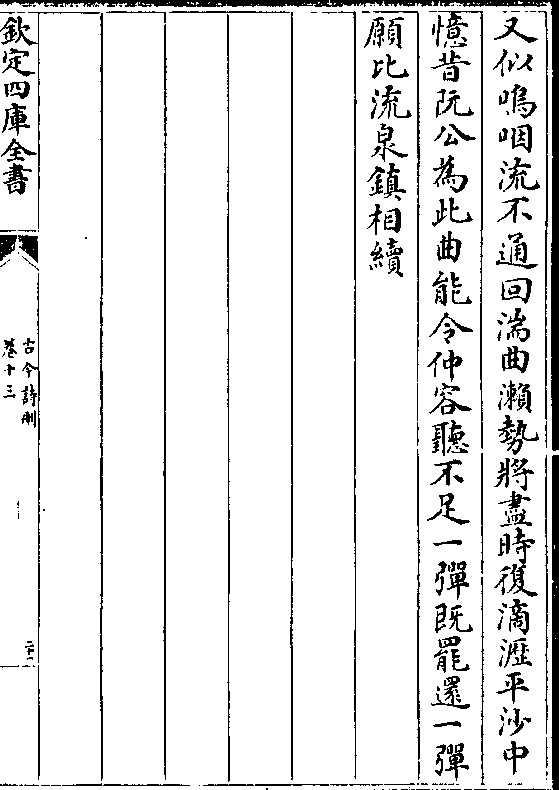 又似嗚咽流不通回湍曲瀨勢將盡時復滴瀝平沙中
憶昔阮公為此曲能令仲容聽不足一彈既罷還一彈
願比流泉鎮相續
欽定四庫全書
古今詩刪
卷十三